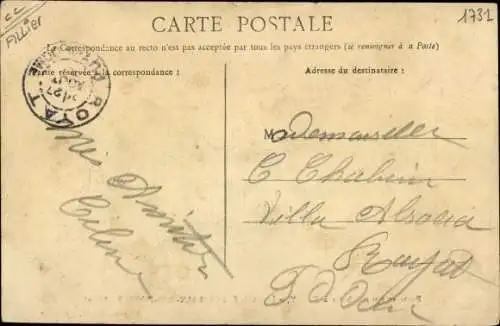 CC
FILLIER
CARTE POSTALE
1731
La Correspondance au recto n'est pas acceptée par tous les pays étrangers (se renseigner à la Poste)
Partie réservée à la correspondance :
Adresse du destinataire :
ROYAT
27
Mademoiselle
C
Villa Alsacia
Royat
P. D. Dôme
Amitiés